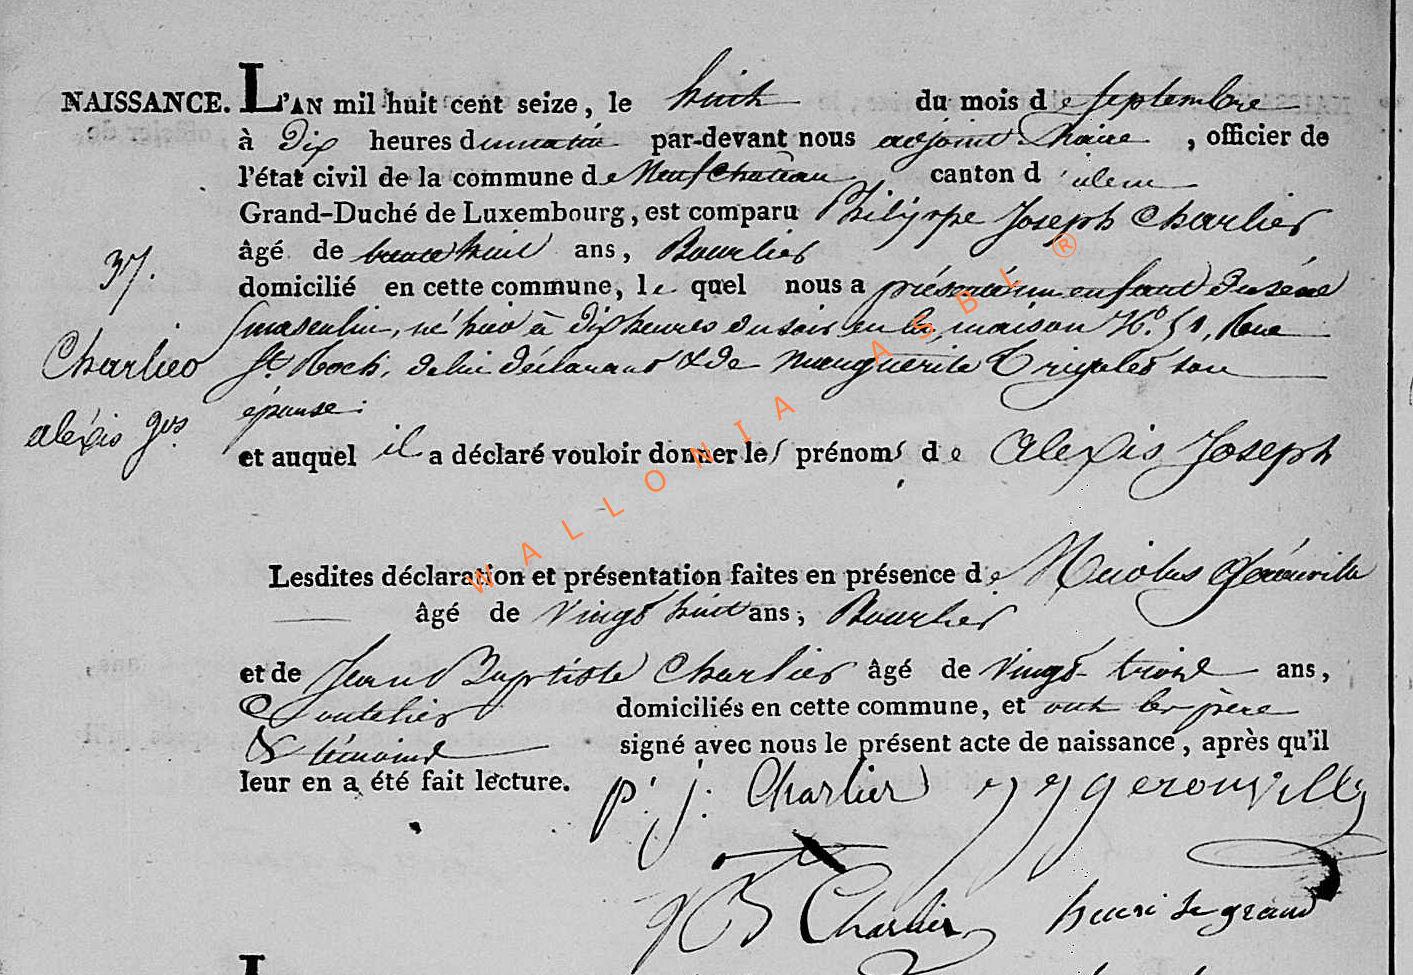 NAISSANCE. L'AN mil huit cent seize, le huit du mois de septembre
à Dix heures du matin par-devant nous adjoint Maire, officier de
l'état civil de la commune de Neufchateau canton d idem
Grand-Duché de Luxembourg, est comparu Philippe Joseph Charlier
âgé de trente huit ans, Bourlier
37.
domicilié en cette commune, le quel nous a présenté un enfant du sexe
masculin, né hier à dix heures du soir en la maison N.º 51, Rue
Charlier
St. Roch, de lui déclarant & de Marguerite son
alexis Jos.
épouse.
et auquel il a déclaré vouloir donner les prénoms de Alexis Joseph
WALLONIA ASBL ®
Lesdites déclaration et présentation faites en présence de Nicolas Gérouville
âgé de vingt huit ans, Bourlier
et de Jean Baptiste Charlier âgé de vingt trois ans,
Coutelier domiciliés en cette commune, et ont les père
& témoins signé avec nous le présent acte de naissance, après qu'il
leur en a été fait lecture. p. j. Charlier gerouville
J B Charlier henri le grand
L